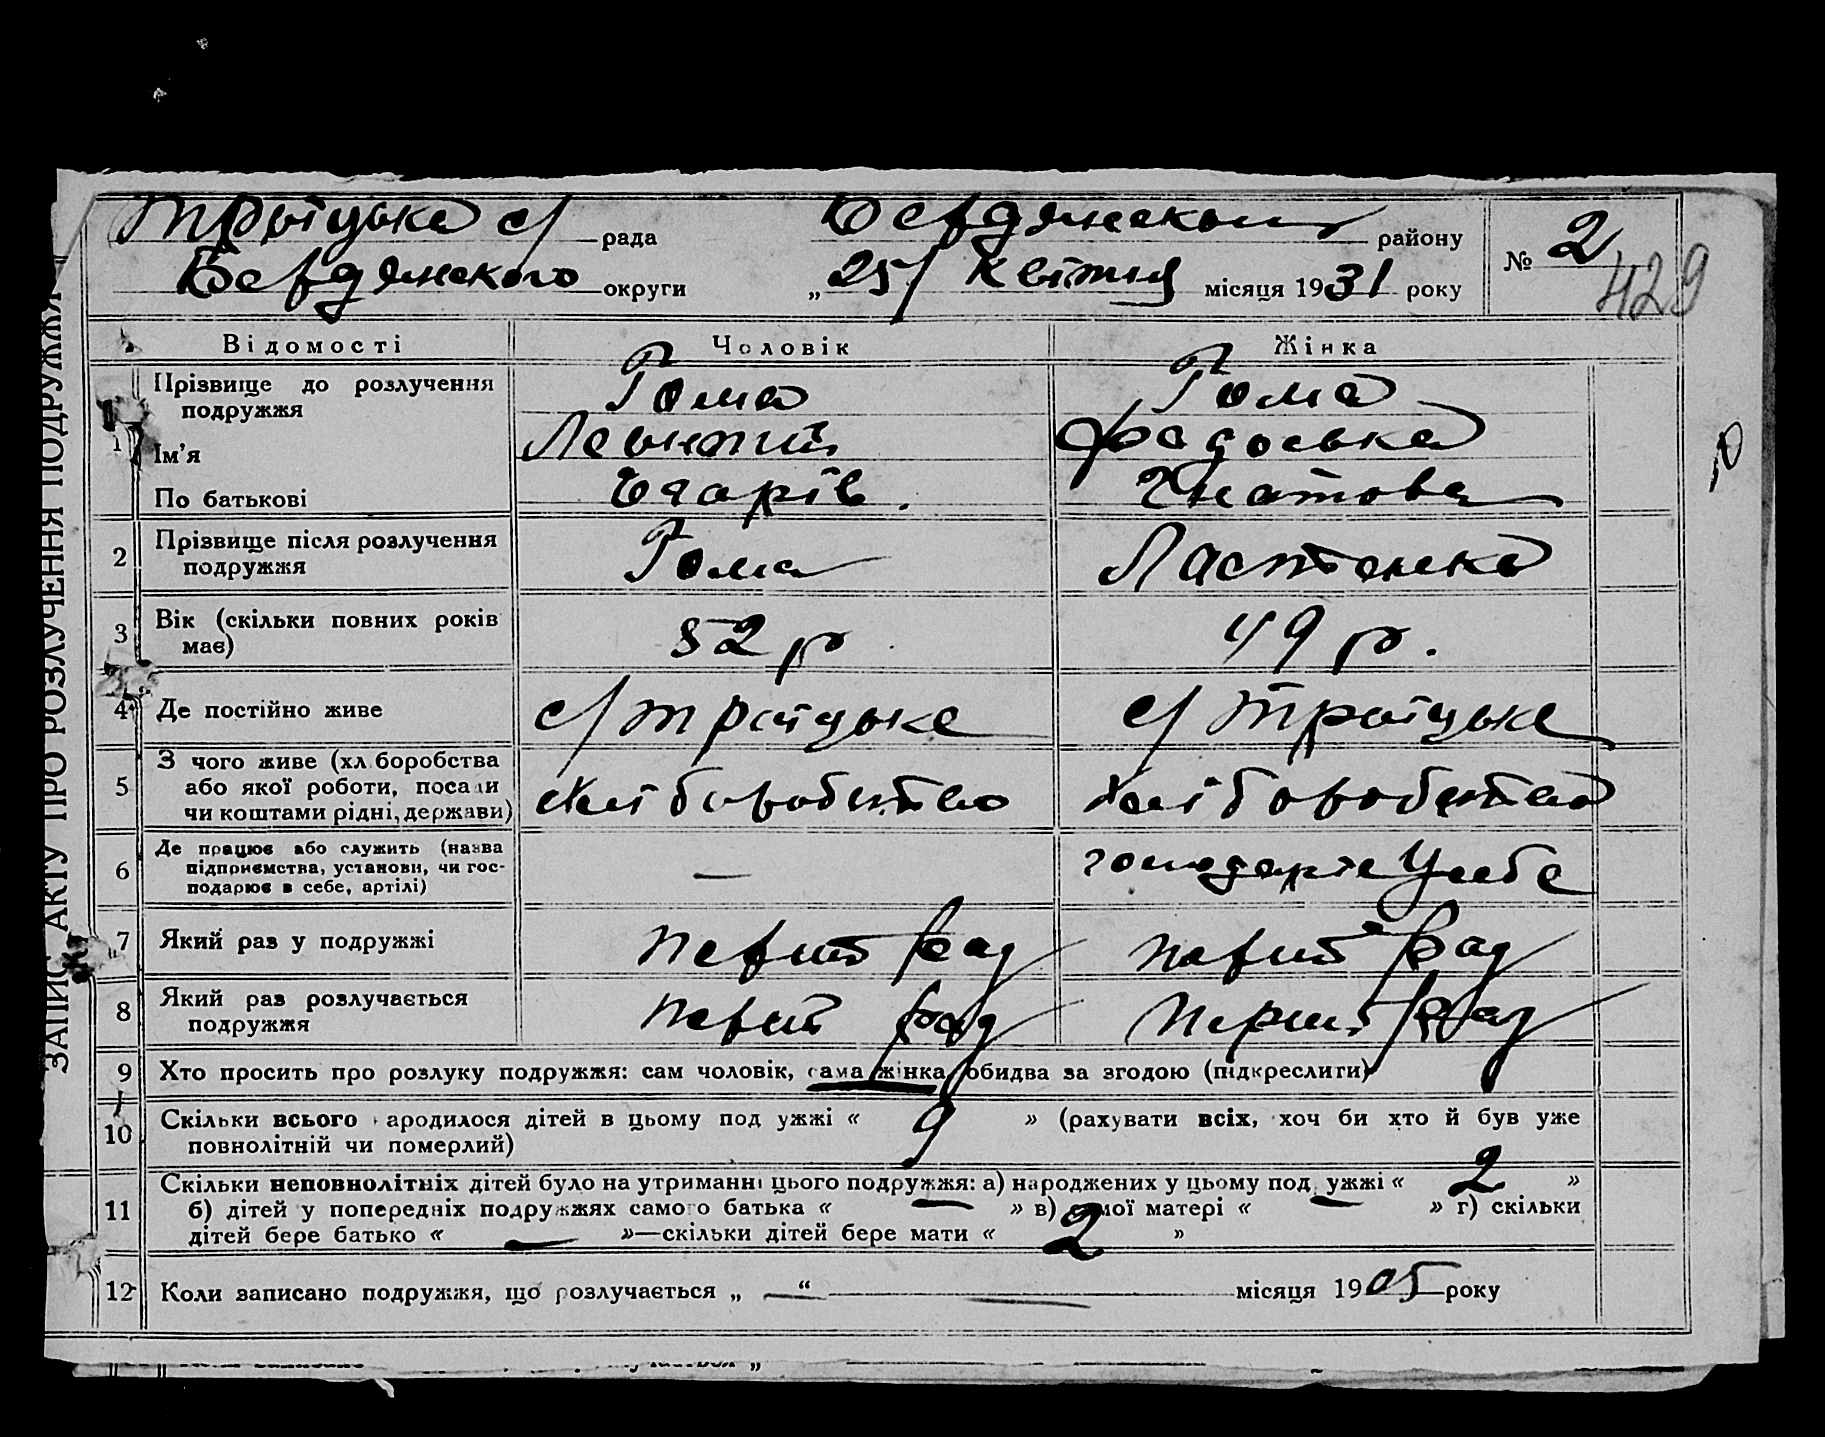 Троїцька с/ рада Бердянского району № 2
429
Бердянского округи „25/ квітня місяця 1931 року
ЗАПИС АКТУ ПРО РОЗЛУЧЕННЯ ПОДРУЖЖЯ
Відомості Чоловік Жінка
1 Прізвище до розлучення подружжя Гома Гома
Ім'я Леонтий Федоська
По батькові Егорів. Гнатова
2 Прізвище після розлучення подружжя Гома Ластовка
3 Вік (скільки повних років має) 52 р 49 р.
4 Де постійно живе с/ Троїцьке с/ Троїцьке
5 З чого живе (хліборобства або якої роботи, посади чи коштами рідні, держави) хліборобство хліборобство
6 Де працює або служить (назва підприємства, установи, чи господарює в себе, артілі) — господарює у себе
7 Який раз у подружжі перший раз перший раз
8 Який раз розлучається подружжя перший раз перший раз
9 Хто просить про розлуку подружжя: сам чоловік, сама жінка, обидва за згодою (підкреслити)
10 Скільки всього народилося дітей в цьому подружжі « 9 » (рахувати всіх, хоч би хто й був уже
повнолітній чи померлий)
11 Скільки неповнолітніх дітей було на утриманні цього подружжя: а) народжених у цьому подружжі « 2 »
б) дітей у попередніх подружжях самого батька « — » в) самої матері « — » г) скільки
дітей бере батько « — »—скільки дітей бере мати « 2 »
12 Коли записано подружжя, що розлучається „ — “ — місяця 1905 року